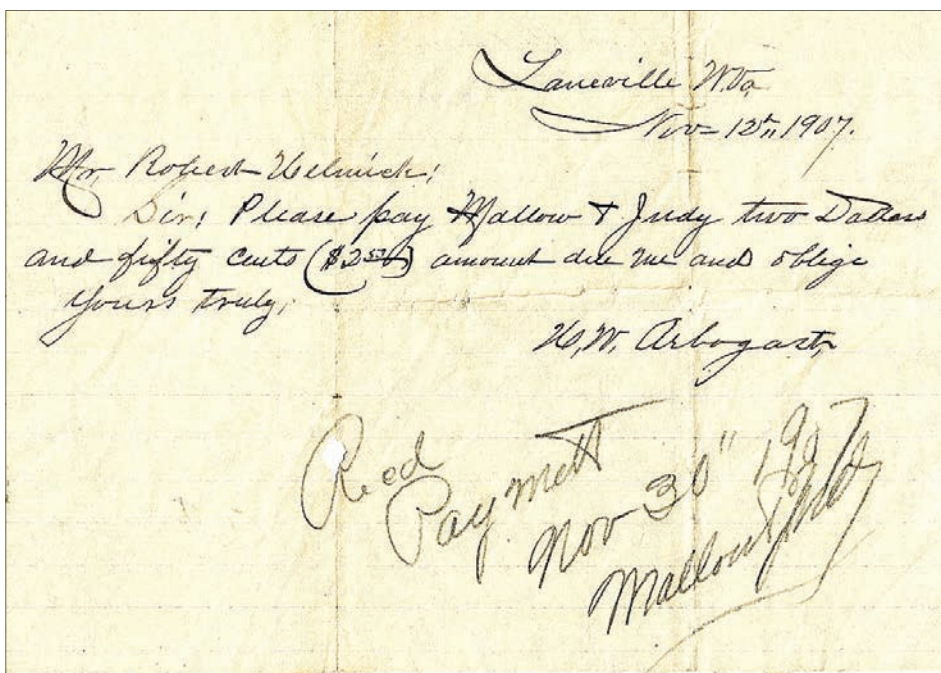 Laneville W.Va.
Nov- 12th, 1907.
Mr. Robert Helmick;
Sir; Please pay Mallow & Judy two Dollars
and fifty cents ($2.50) amount due me and oblige
yours truly,
H. W. Arbogast,
Recd
Paymett
Nov 30" 1907
Mallow & Judy